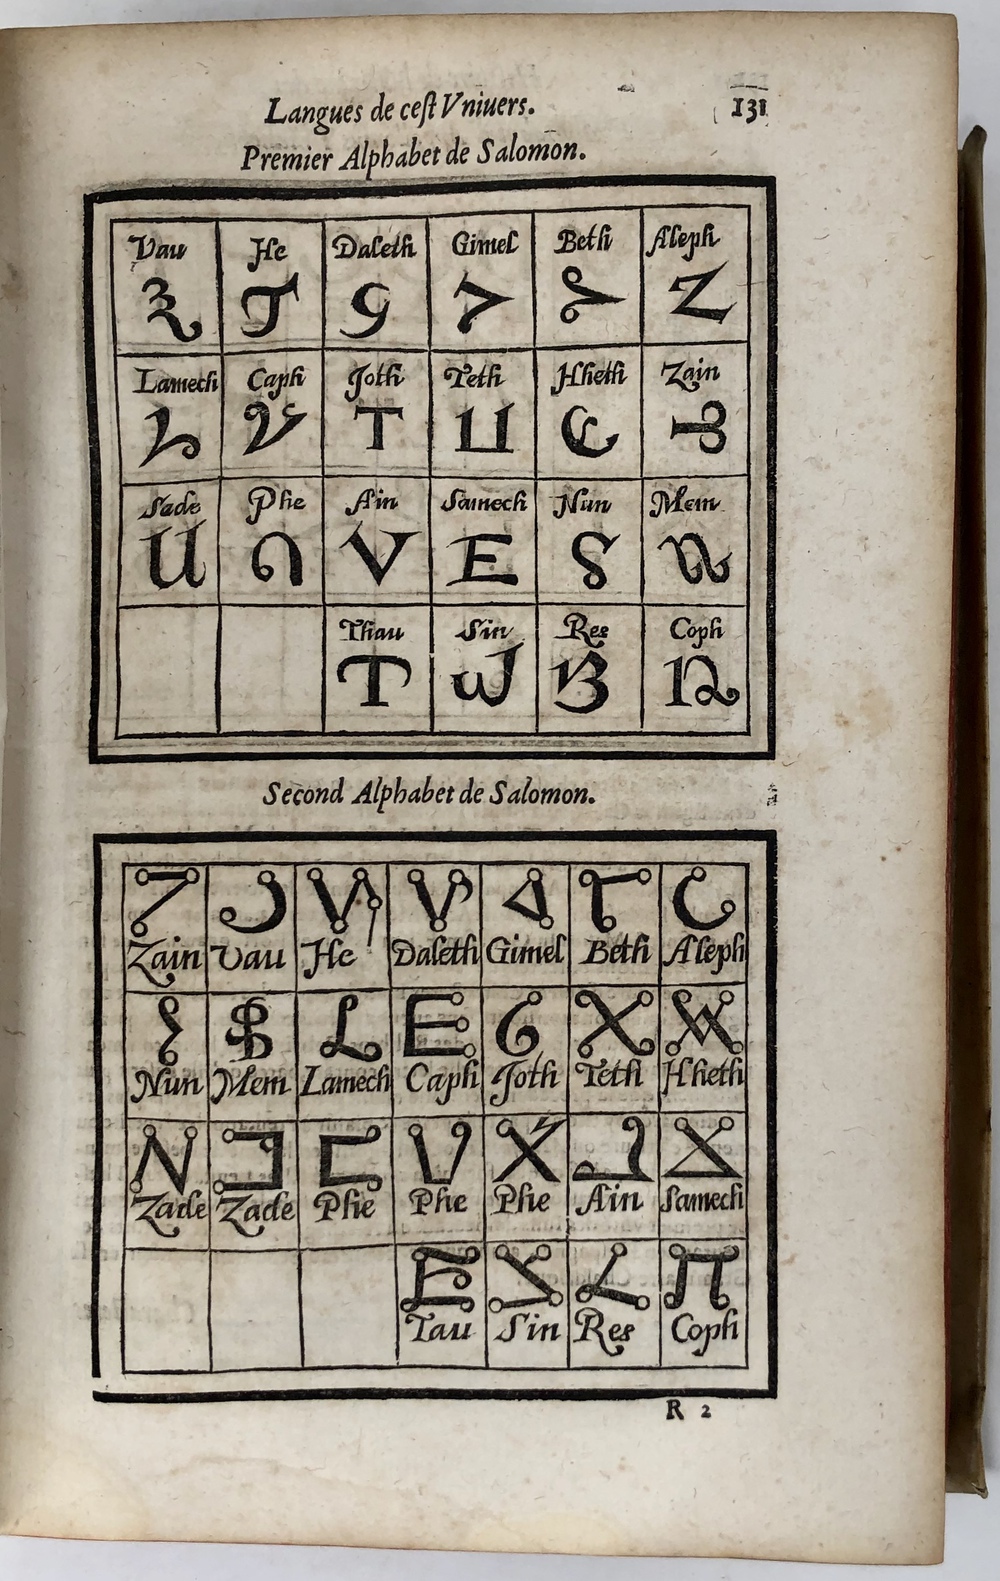 Langues de cest Vniuers. 131
Premier Alphabet de Salomon.
Vau He Daleth Gimel Beth Aleph
Lamech Caph Joth Teth Hheth Zain
Sade Phe Ain Samech Nun Mem
Thau Sin Res Coph
Second Alphabet de Salomon.
Zain Vau He Daleth Gimel Beth Aleph
Nun Mem Lamech Caph Joth Teth Hheth
Zade Zade Phe Phe Phe Ain Samech
Tau Sin Res Coph
R 2